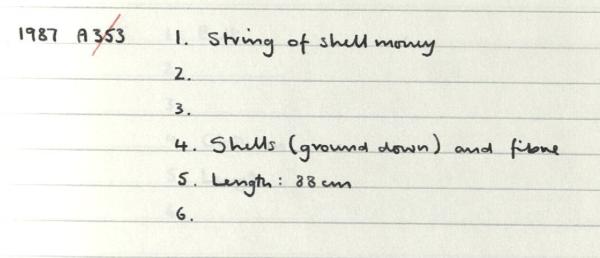 1987 A353 1. String of shell money
2.
3.
4. Shells (ground down) and fibre
5. Length: 38 cm
6.